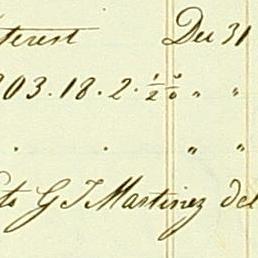 terest Dec 31
903.18.2. ½ % " "
. . " "
ts G T Martinez del